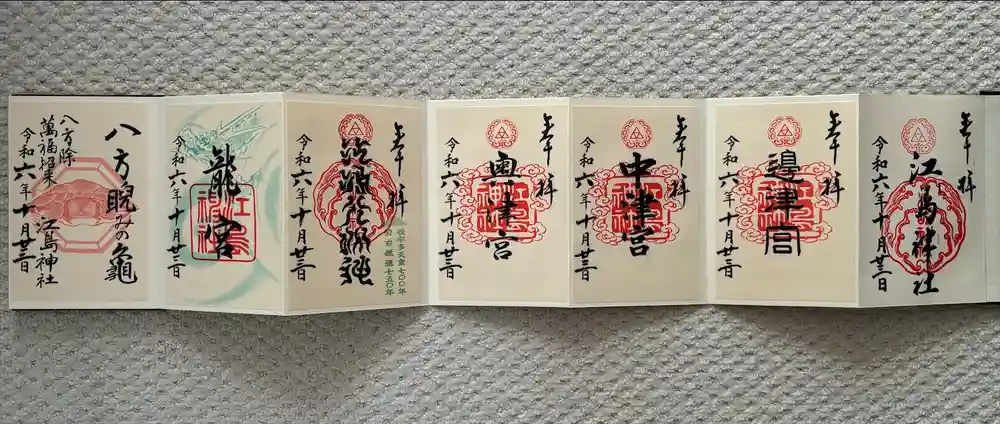 奉拝
江島神社
令和六年十月廿三日
奉拝
邉津宮
令和六年十月廿三日
奉拝
中津宮
令和六年十月廿三日
奉拝
奥津宮
令和六年十月廿三日
奉拝
令和六年十月廿三日
龍宮
令和六年十月廿三日
八方睨みの亀
江島神社
八方除
萬福招来
令和六年十月廿三日